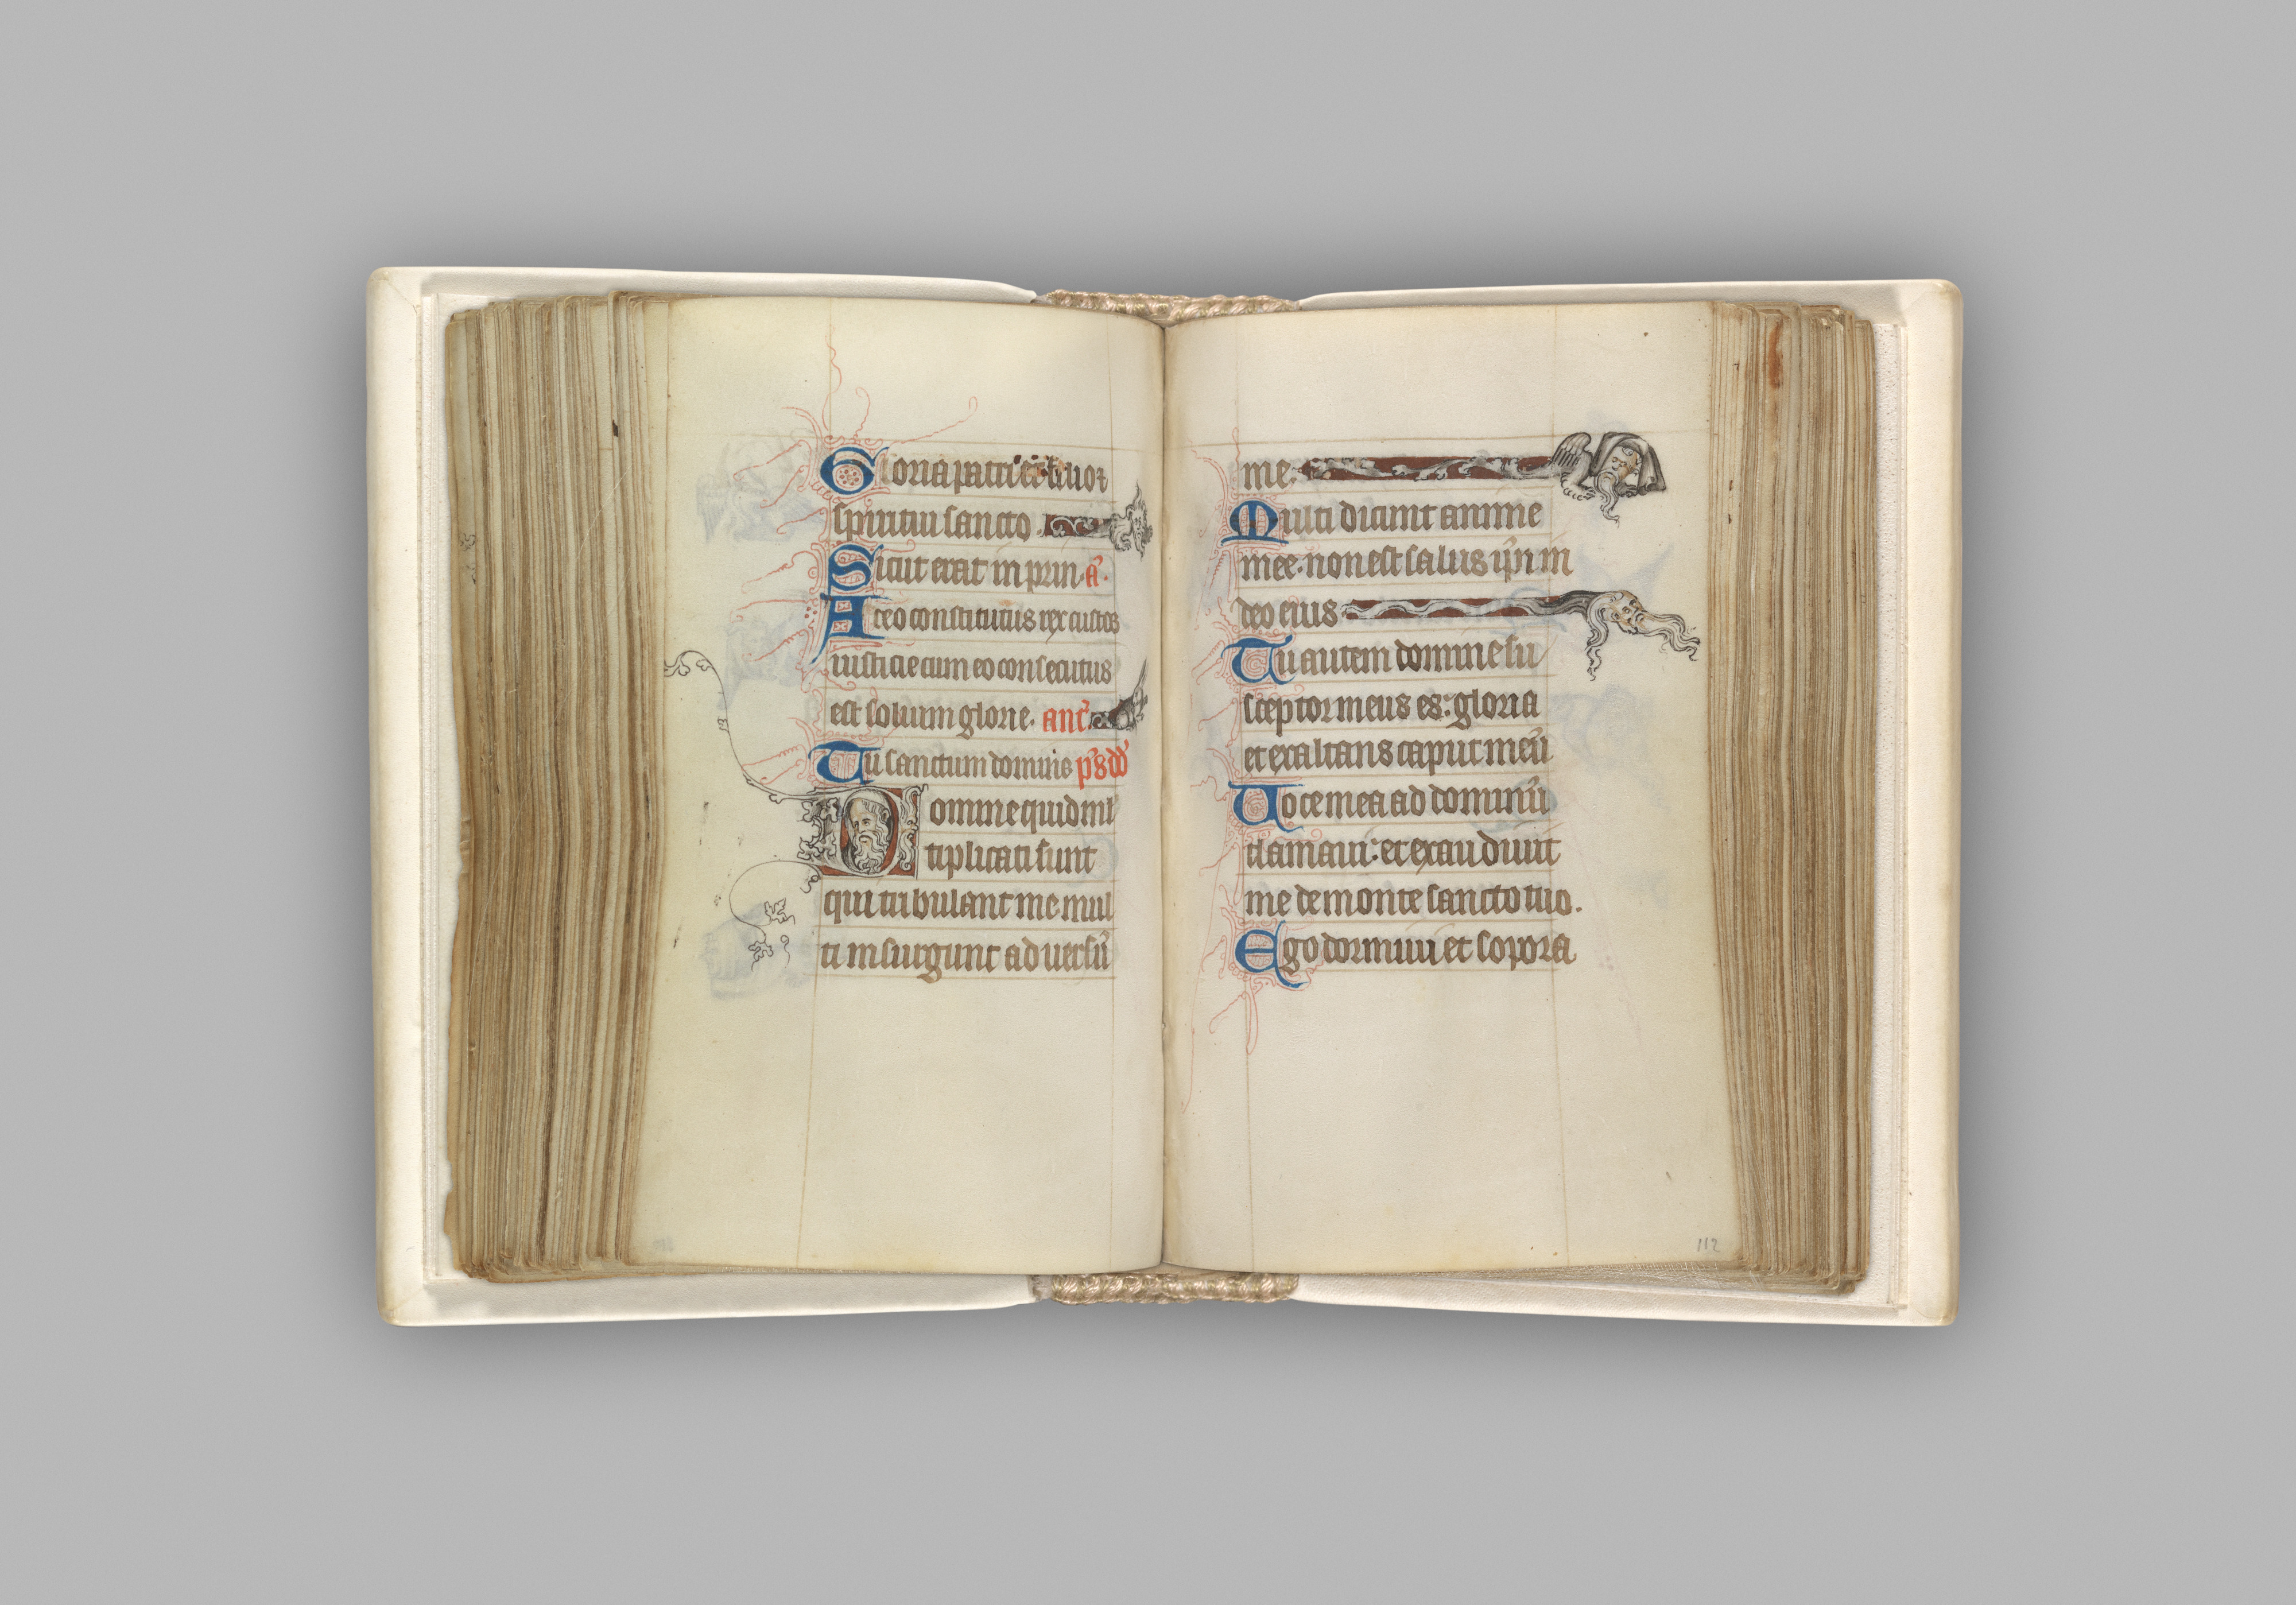 Gloria patri et filio et
spiritui sancto
Sicut erat in prin. a̾.
A deo constitutus rex custos
iusticie cum eo consecutus
est solium glorie. an̾t.
Tu sanctum dominis ps̾ dd̾
Domine quid ml̾
tiplicati sunt
qui tribulant me mul
ti insurgunt ad versū
me.
Multi dicunt anime
mee. non est salus ip̄i in
deo eius
Tu autem domine su
sceptor meus es: gloria
et exaltans caput meū
Uoce mea ad dominū
clamaui: et exau diuit
me de monte sancto tuo.
Ego dormiui et sopora
112